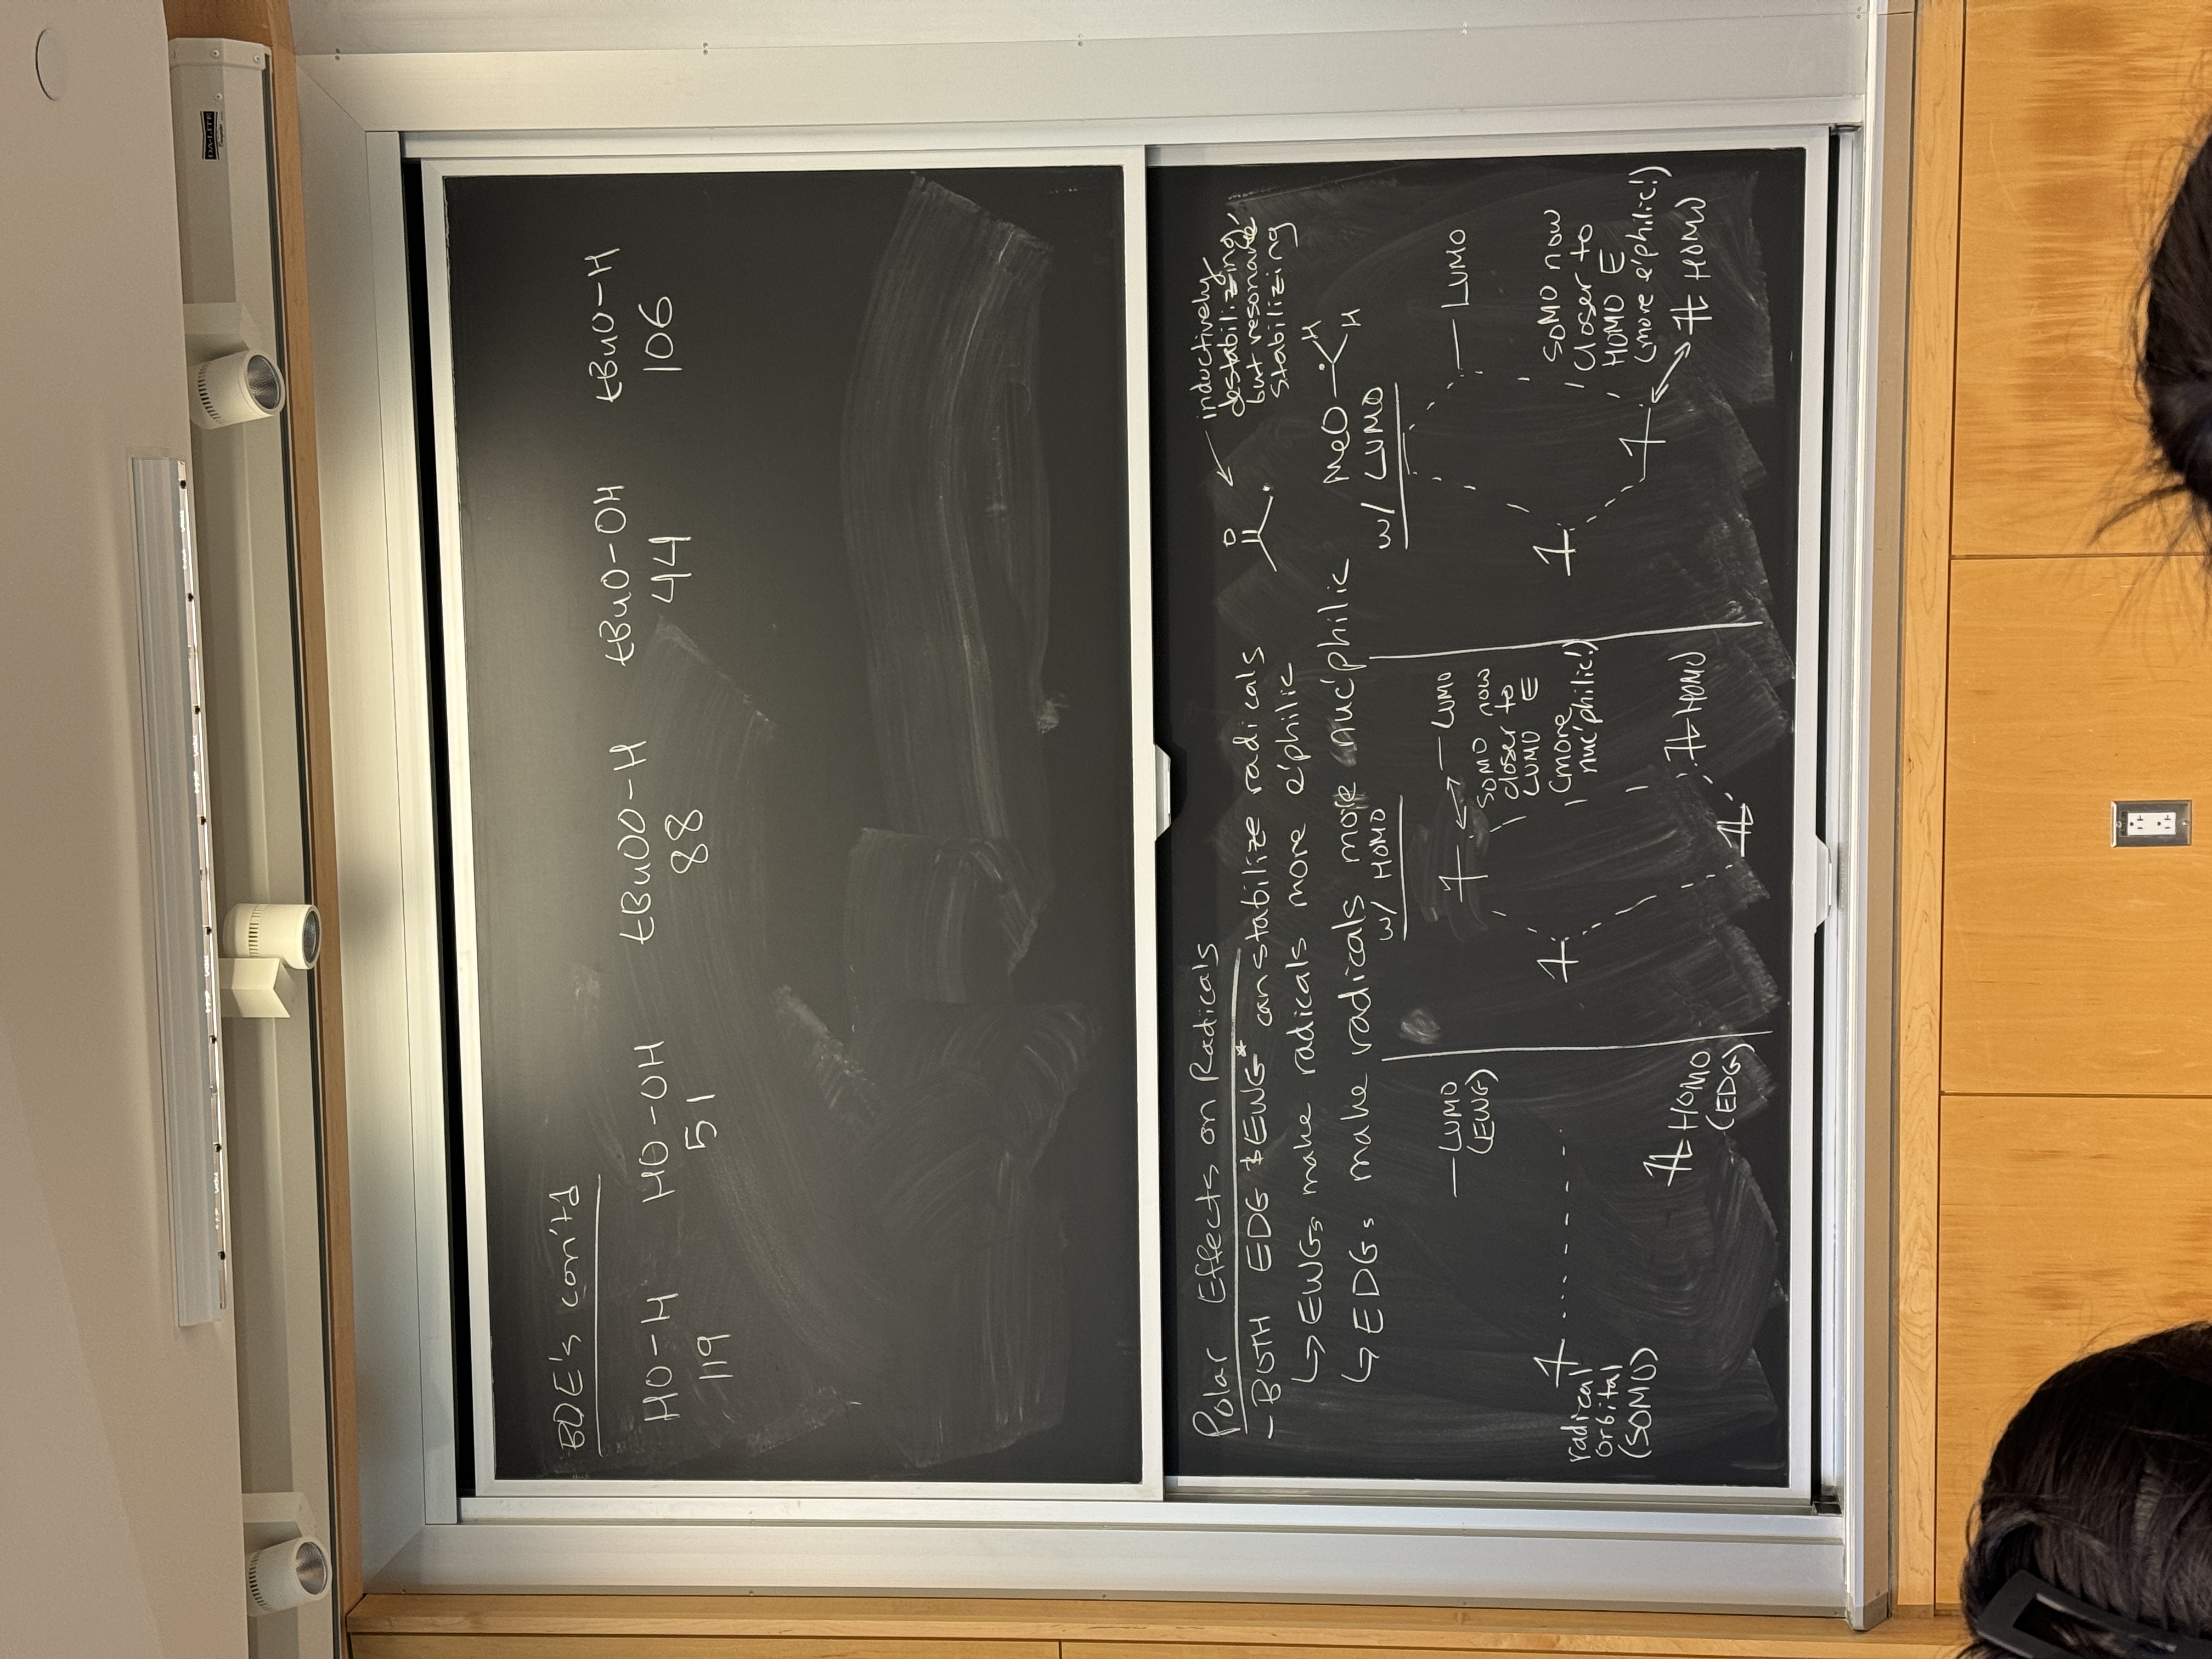 DA-LITE
BDE's con'td
HO-H HO-OH tBuOO-H tBuO-OH tBuO-H
119 51 88 44 106
Polar Effects on Radicals
- BOTH EDG & EWG* can stabilize radicals
↳ EWGs make radicals more e'philic
↳ EDGs make radicals more nuc'philic
O
inductively
destabilizing,
but resonance
stabilizing
MeO
H
H
LUMO
(EWG)
radical
orbital
(SOMO)
HOMO
(EDG)
w/ HOMO
LUMO
SOMO now
closer to
LUMO E
(more
nuc'philic!)
HOMO
w/ LUMO
LUMO
SOMO now
closer to
HOMO E
(more e'philic!)
HOMO